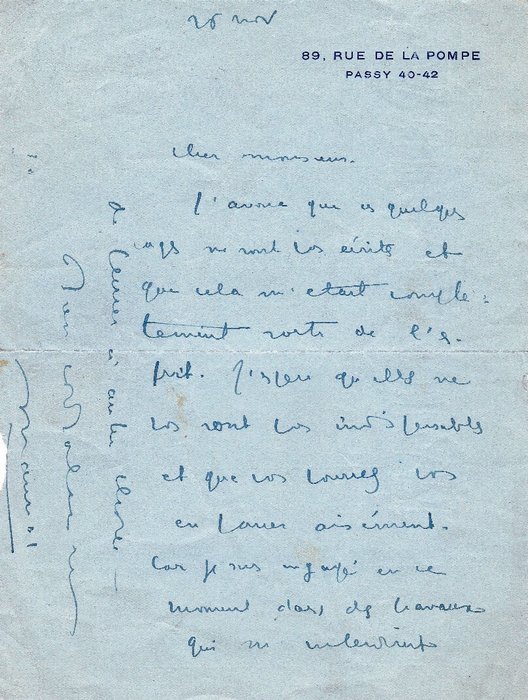 25 nov
89, RUE DE LA POMPE
PASSY 40-42
Cher monsieur.
J'avoue que ces quelques
pages ne sont pas écrites et
que cela m'etait comple-
tement sorti de l'es-
prit. J'espere qu'elles ne
vous sont pas indispensables
et que vous pourrez vous
en passer aisément.
Car je suis engagé en ce
moment dans des travaux
qui m'interdisent
de penser à autre chose —